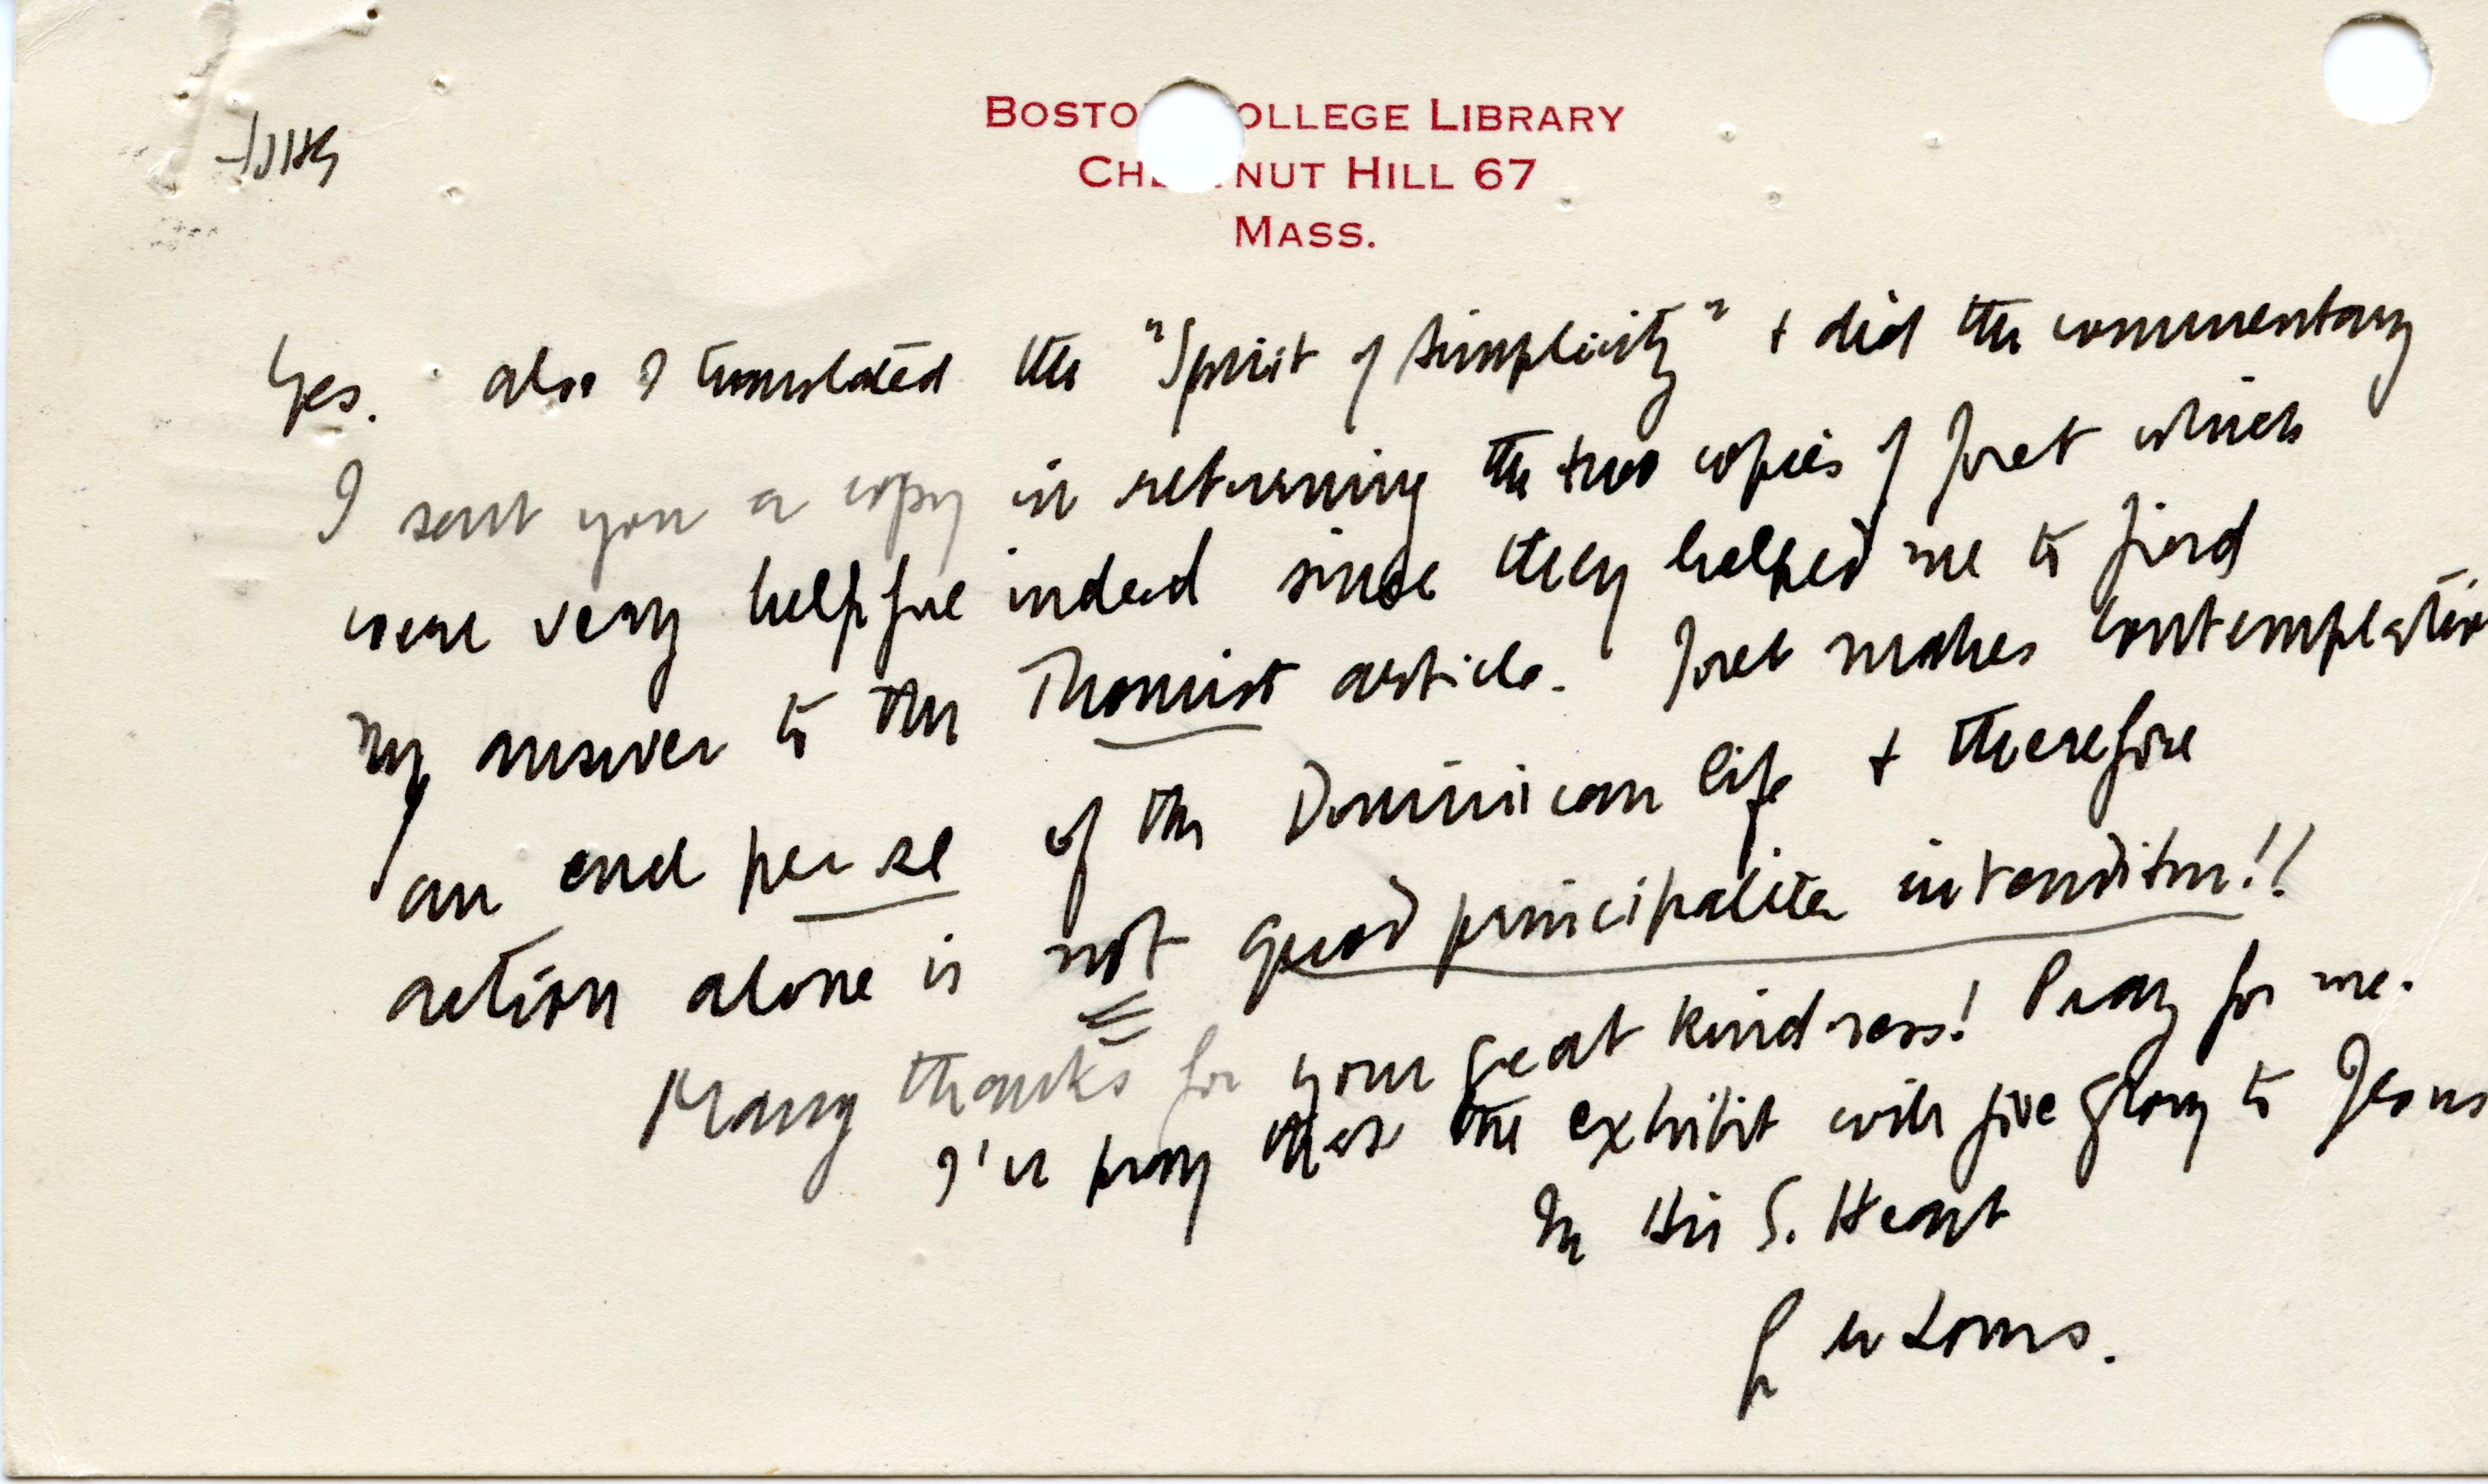 BOSTO OLLEGE LIBRARY
CHE NUT HILL 67
MASS.
Yes. also I translated the "Spirit of Simplicity" + did the commentary
I sent you a copy in returning the two copies of Joret which
were very helpful indeed since they helped me to find
my answer to the Thomist article. Joret makes contemplation
an end per se of the Dominican life + therefore
action alone is not quod principaliter intenditur!!
Many thanks for your great kindness! Pray for me.
I'll pray that the exhibit will give glory to Jesus
In His S. Heart
fr m Louis.